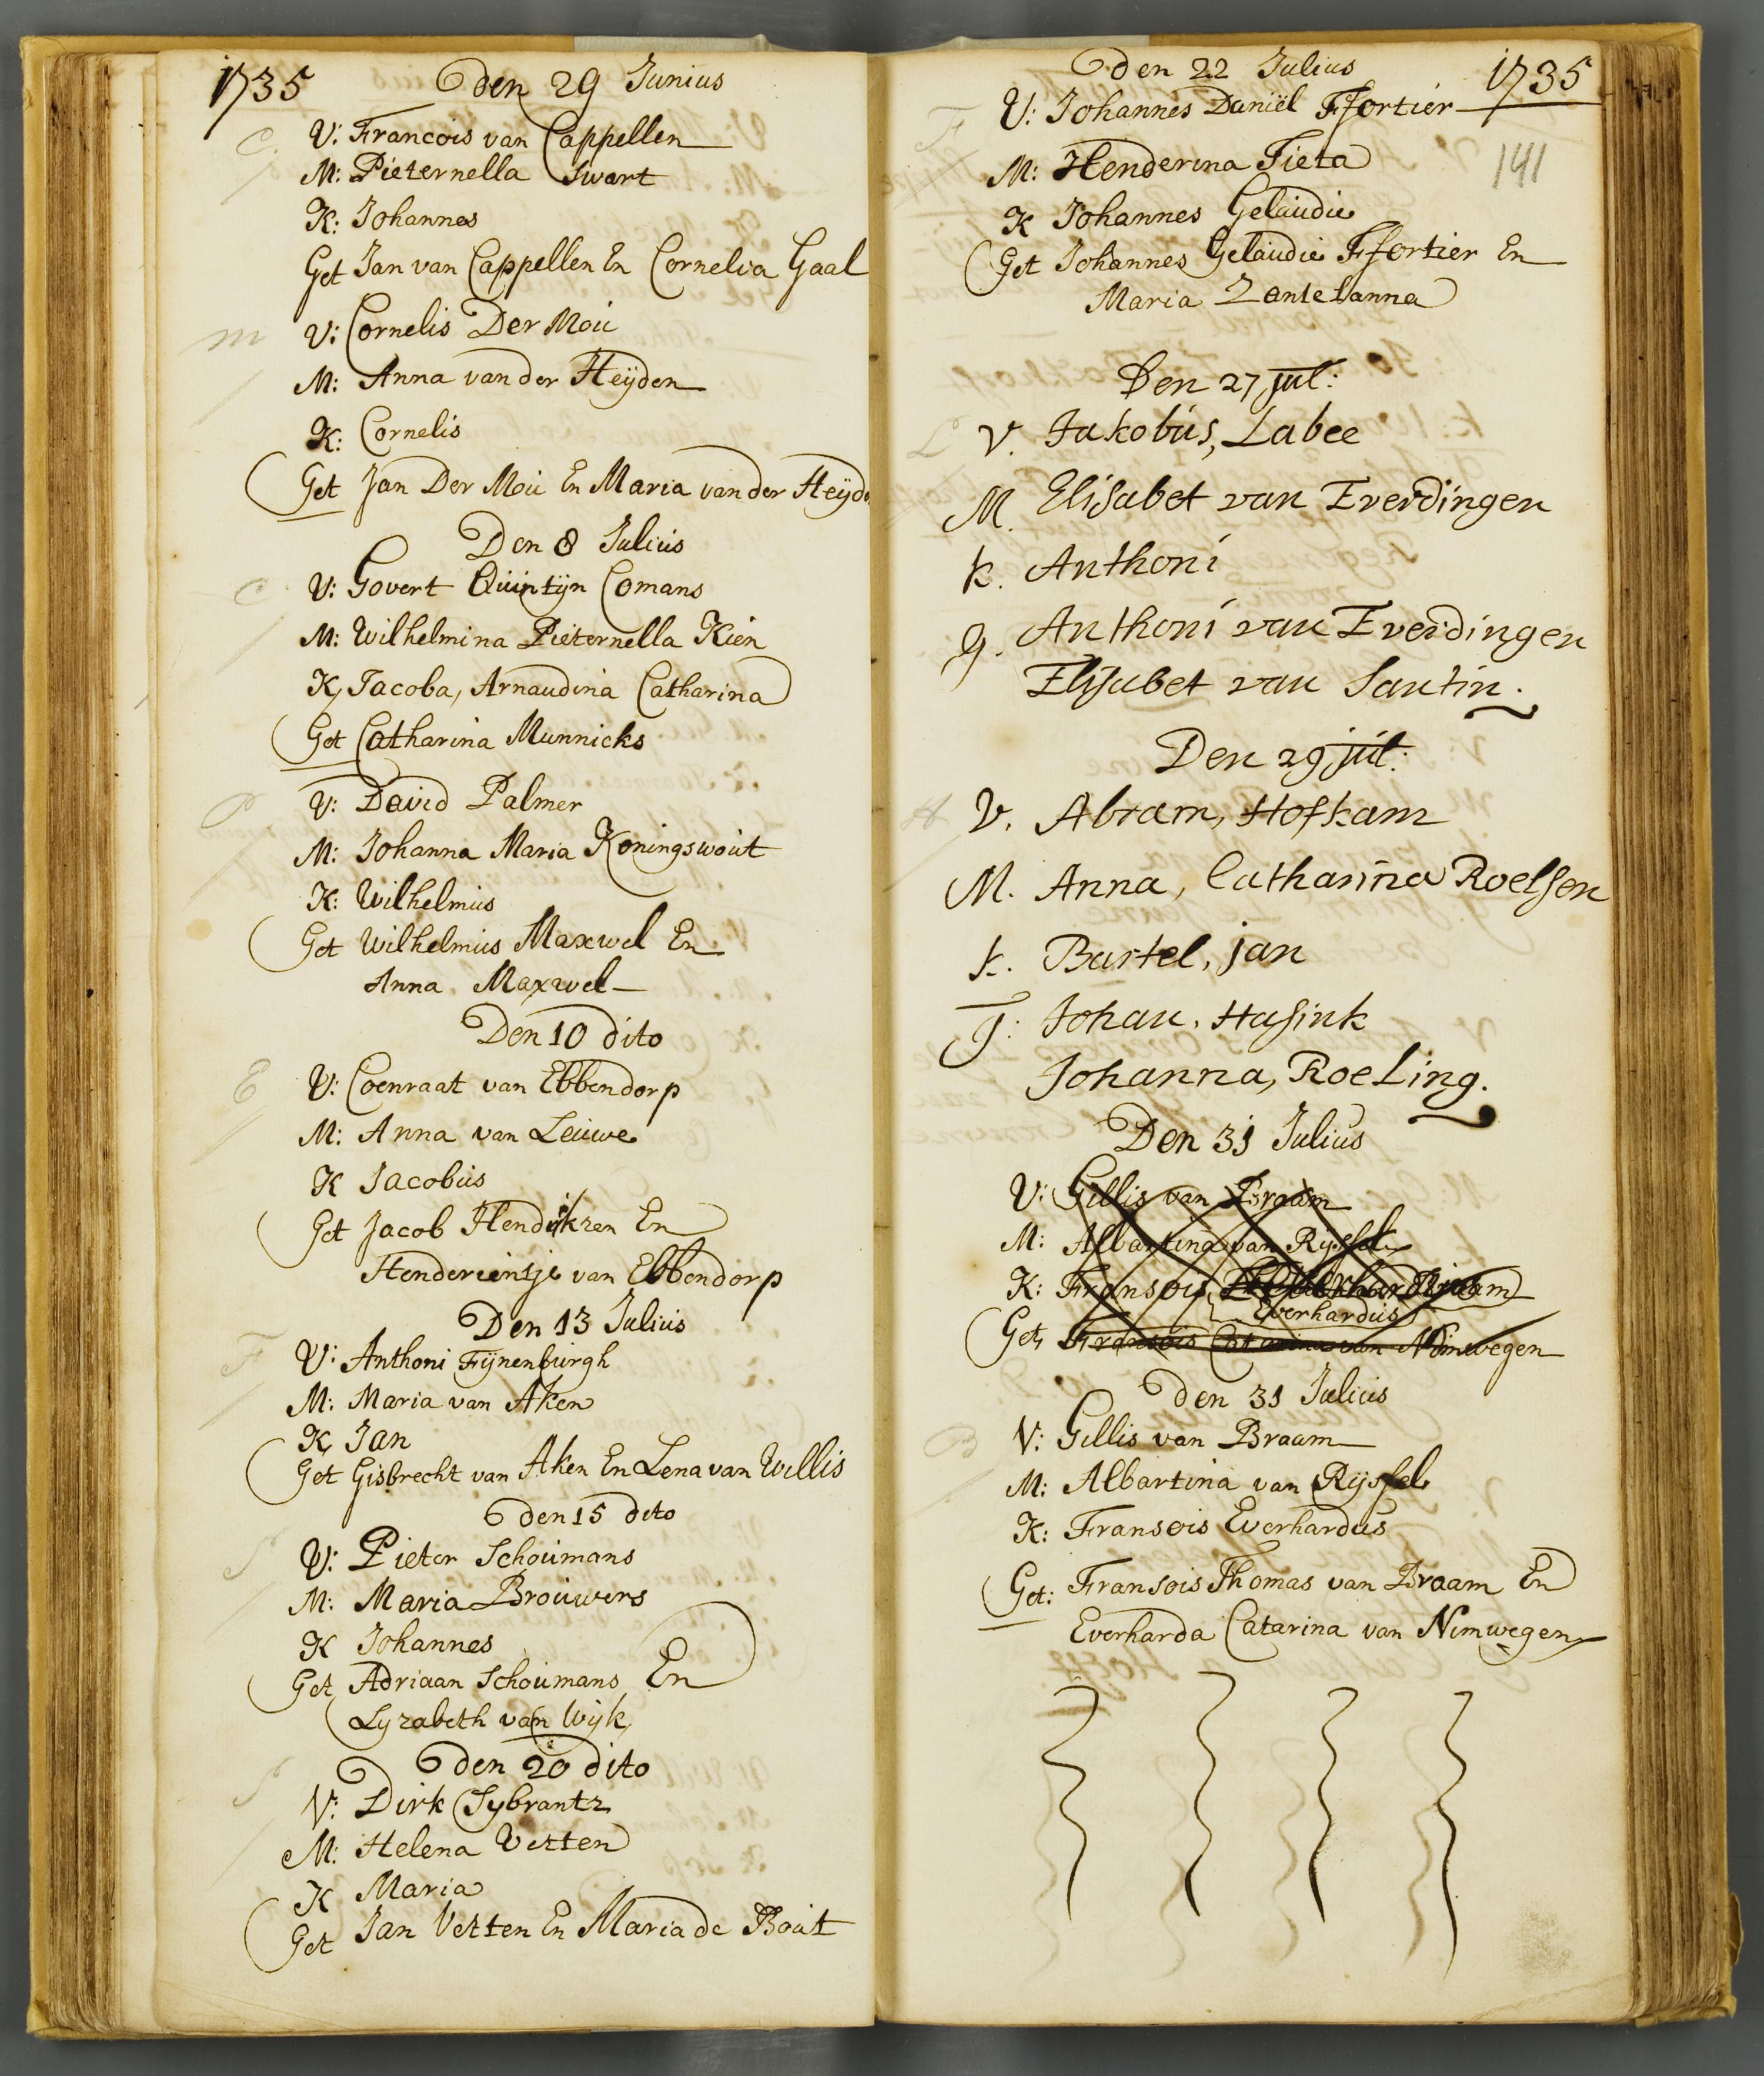 1735 den 29 Junius
C. V: Francois van Cappellen
M: Pieternella Swart
K: Johannes
Get Jan van Cappellen En Cornelia Gaal
m V: Cornelis Der Moü
M: Anna van der Heÿden
K: Cornelis
Get Jan Der Moü En Maria van der Heÿde
Den 8 Julius
C V: Govert Quintijn Comans
M: Wilhelmina Pieternella Kien
K, Jacoba, Arnaudina Catharina
Get Catharina Munnicks
P V: David Palmer
M: Johanna Maria Koningswout
K: Wilhelmus
Get Wilhelmus Maxwel En
Anna Maxwel
Den 10 dito
E V: Coenraat van Ebbendorp
M: Anna van Leuwe
K Jacobus
Get Jacob Hendikzen En
Henderiensje van Ebbendorp
Den 13 Julius
F V: Anthoni Fijnenburgh
M: Maria van Aken
K, Jan
Get Gisbrecht van Aken En Lena van Willis
den 15 dito
S V: Pieter Schoumans
M: Maria Brouwers
K Johannes
Get Adriaan Schoumans En
Lyzabeth van Wijk
den 20 dito
S V: Dirk Sybrantz
M: Helena Vetten
K Maria
Get Jan Vetten En Maria de Bout
den 22 Julius 1735
F V: Johannes Daniël Ffortier
141
M: Henderina Fieta
K Johannes Gelaudie
Get Johannes Gelaudie Ffortier En
Maria Zantelanna
Den 27 jul:
L V. Jakobus, Labee
M. Elisabet van Everdingen
k. Anthoni
g. Anthoni van Everdingen
Elisabet van Santin.
Den 29 jul:
H V. Abram, Hofkam
M. Anna, Catharina Roelsen
k. Bartel, jan
G: Johan, Hasink
Johanna, Roeling.
Den 31 Julius
V: Gillis van Braam
M: Albartina van Rijssel
K: Fransois
Everhardus
Get, Fransois Catarina van Nimwegen
den 31 Julius
B V: Gillis van Braam
M: Albartina van Rijssel
K: Fransois Everhardus
Get: Fransois Thomas van Braam En
Everharda Catarina van Nimwegen